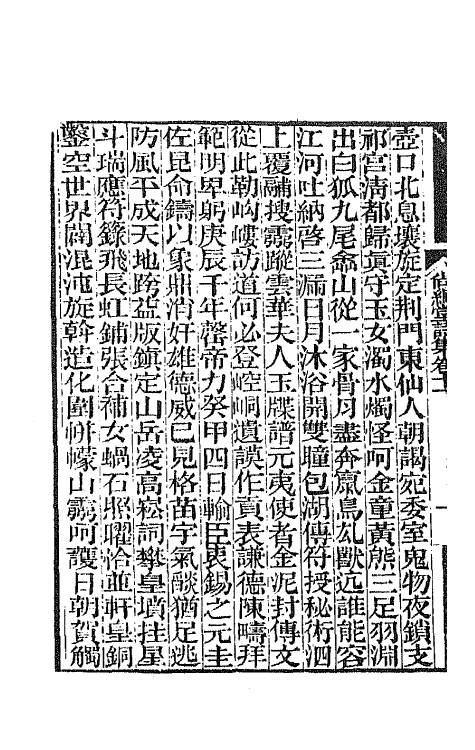 壺口北息壤旋定荆門東仙人朝謁宛委室鬼物夜鎖支
祁宮清都歸眞守玉女濁水燭怪呵金童黃熊三足羽淵
出白狐九尾龕山從一家骨月盡奔 鳥 獸 誰能容
江河吐納啓三漏日月沐浴開雙瞳包湖傳符授秘術泗
上覆鬴搜靈蹤雲華夫人玉牒譜元夷使者金泥封傳文
從此勒岣嶁訪道何必登崆峒遺謨作貢表謙德陳疇拜
範明卑躬庚辰千年罄帝力癸甲四日輸臣衷錫之元圭
佐昆命鑄以象鼎消奸雄德威已見格苗字氣燄猶足逃
防風平成天地跨益版鎮定山岳凌高崧詞攀皇墳挂星
斗瑞應符籙飛長虹鋪張合補女媧石照曜恰並軒皇銅
鑿空世界闢混沌旋斡造化圍帡幪山靈呵護日朝賀觸